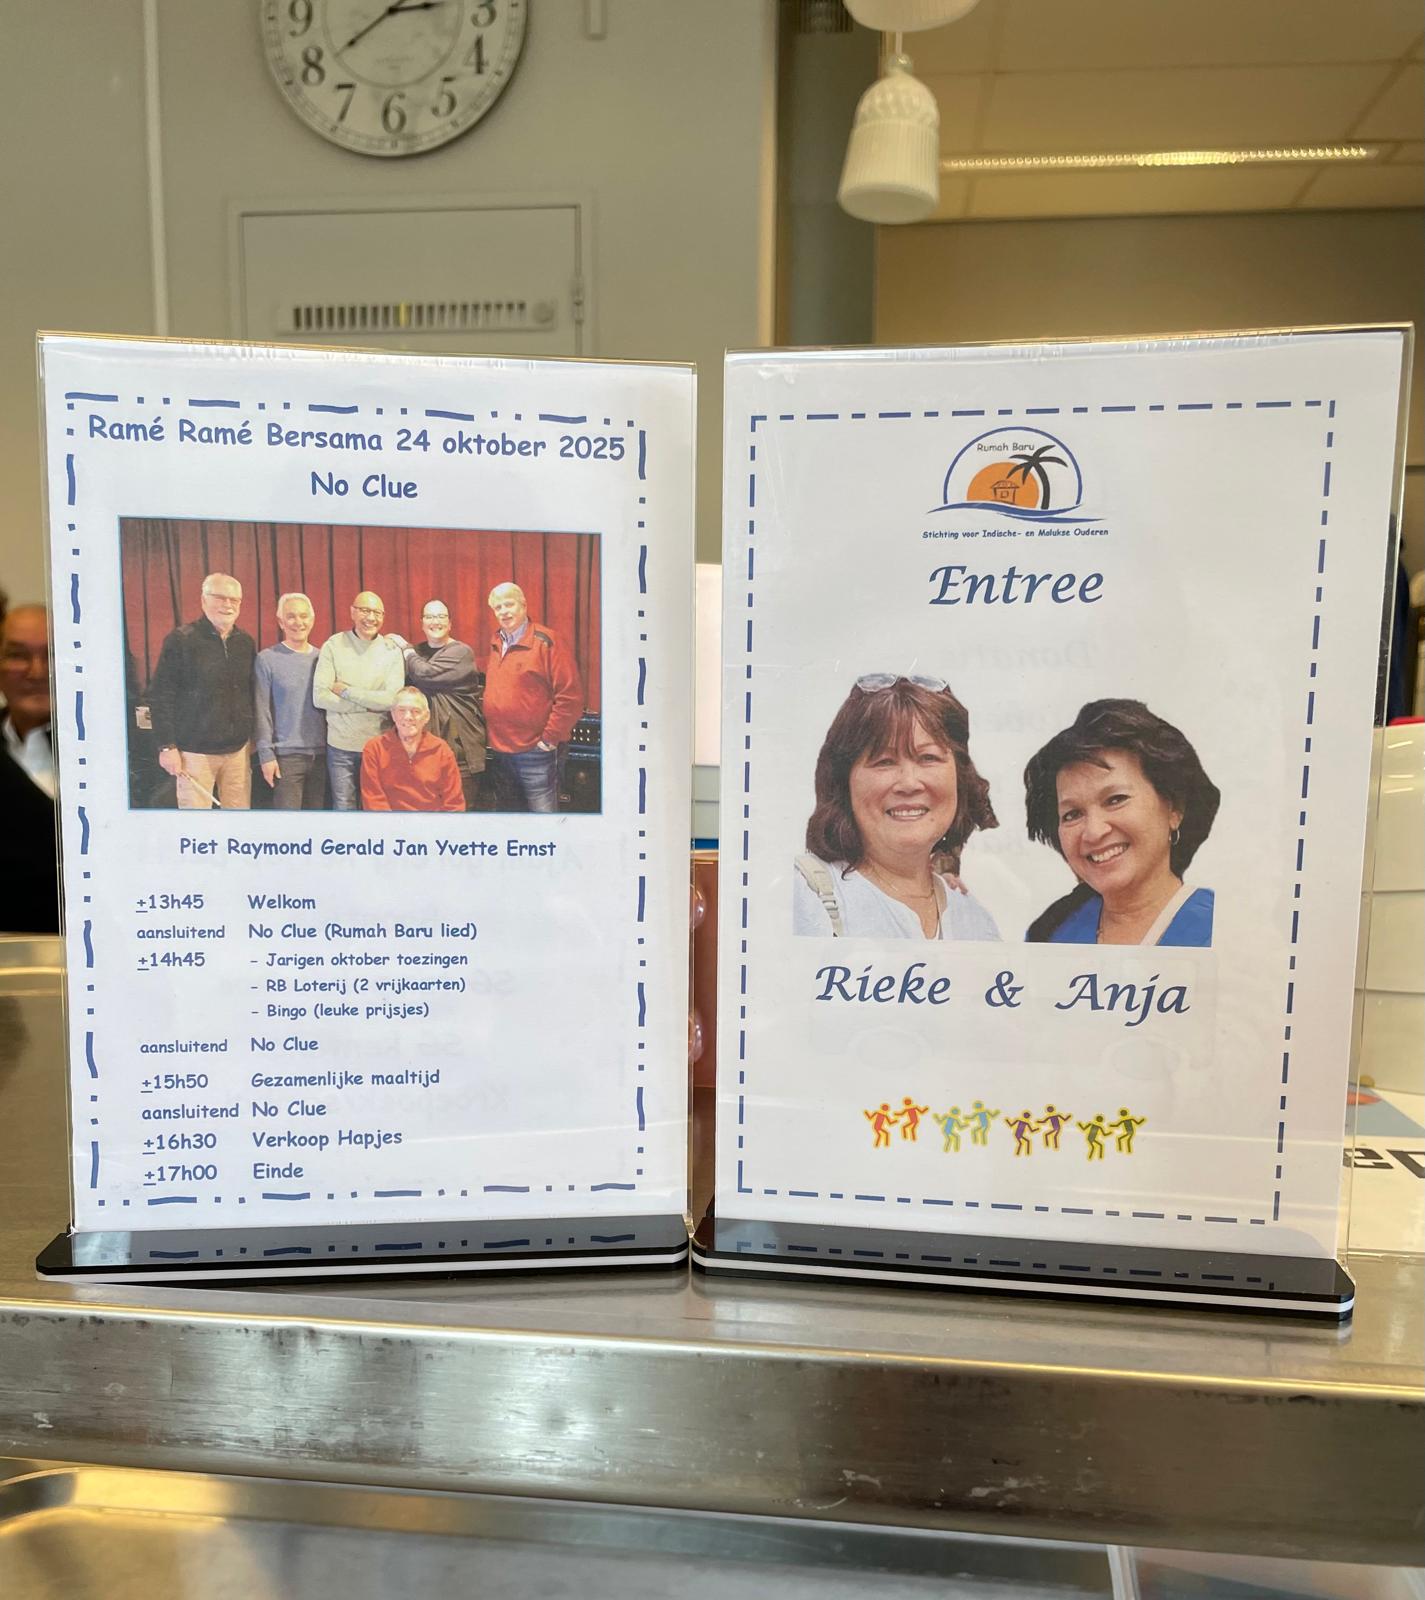 9
8
7
6
5
4
3
Ramé Ramé Bersama 24 oktober 2025
No Clue
Piet Raymond Gerald Jan Yvette Ernst
±13h45 Welkom
aansluitend No Clue (Rumah Baru lied)
±14h45 - Jarigen oktober toezingen
- RB Loterij (2 vrijkaarten)
- Bingo (leuke prijsjes)
aansluitend No Clue
±15h50 Gezamenlijke maaltijd
aansluitend No Clue
±16h30 Verkoop Hapjes
±17h00 Einde
Rumah Baru
Stichting voor Indische- en Malukse Ouderen
Entree
Rieke & Anja